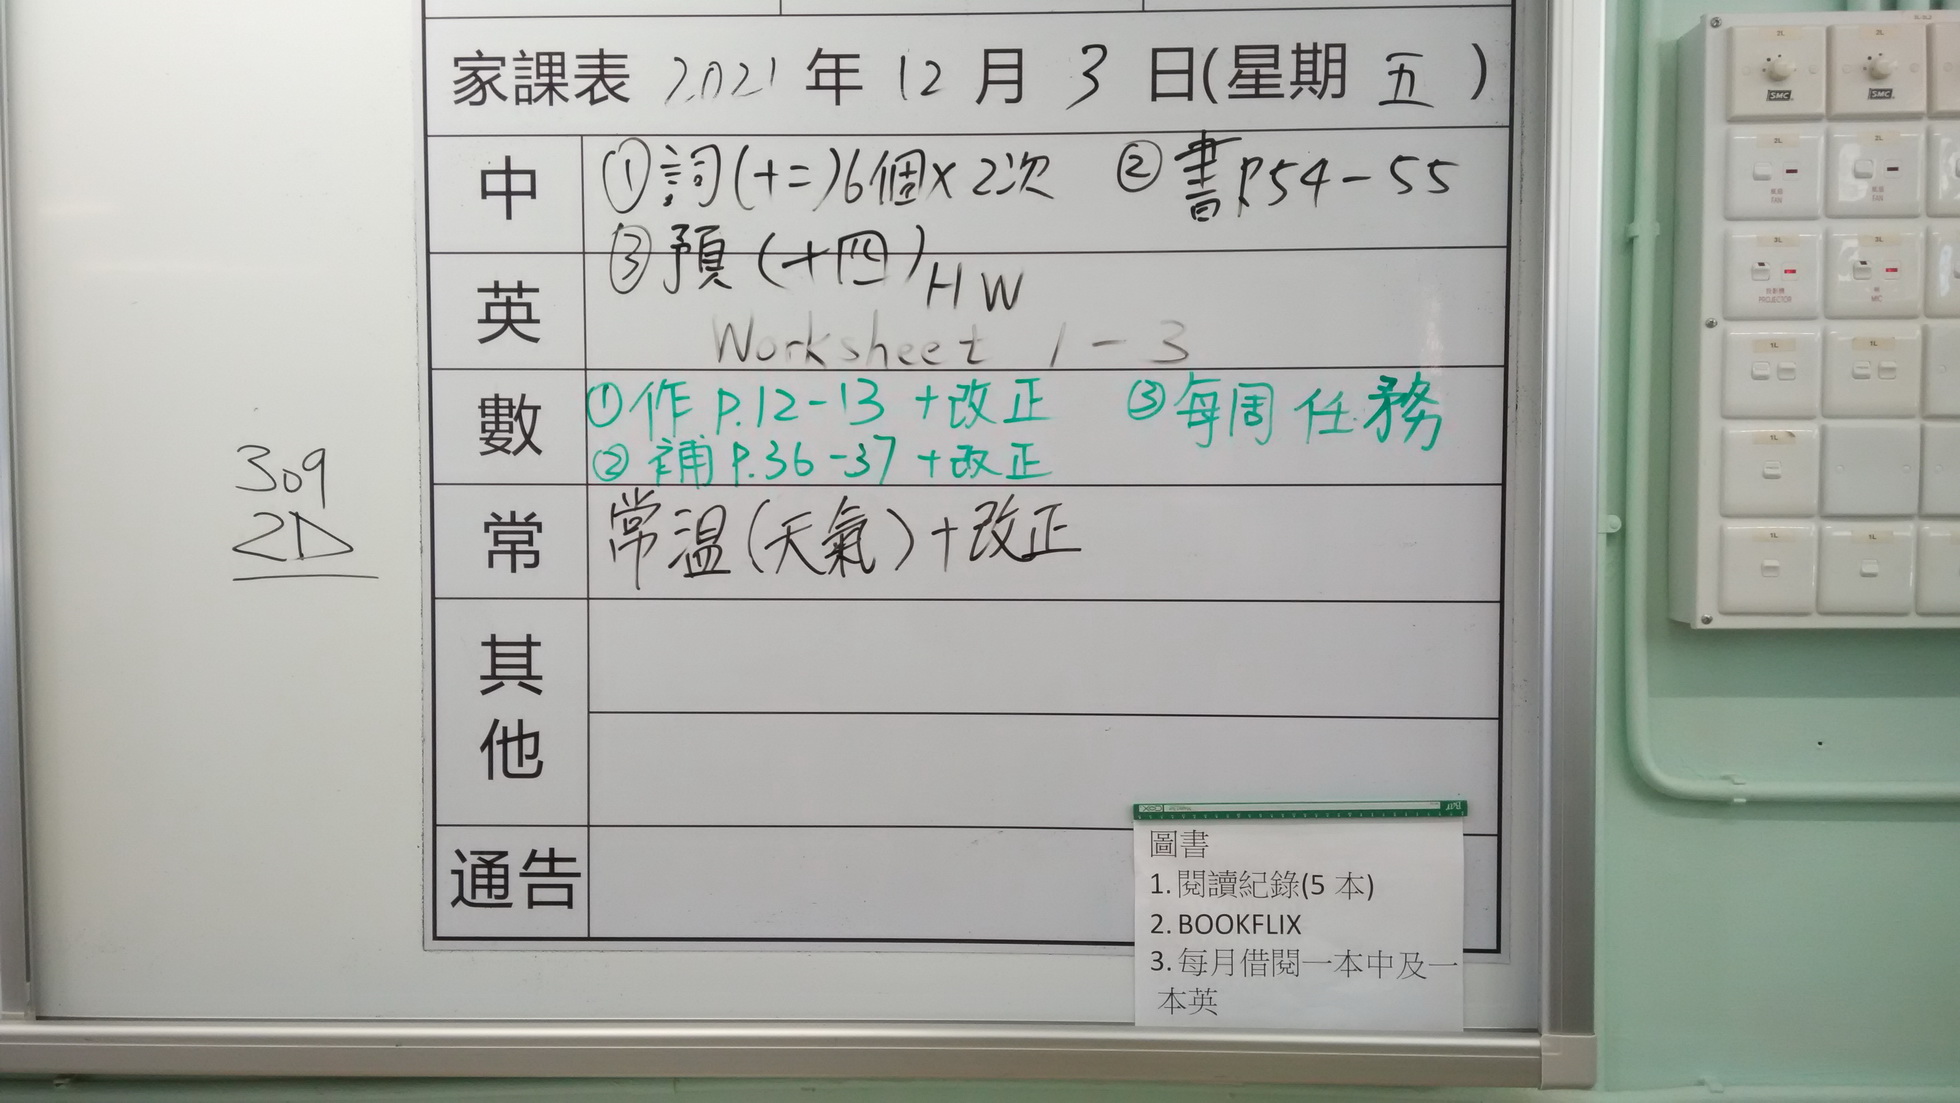 家課表 2021 年 12 月 3 日(星期 五 )
中 ①詞(十二)6個×2次 ②書P.54-55
③預(十四)
英 HW
Worksheet 1-3
數 ①作 P.12-13 +改正 ③每周任務
②補 P.36-37 +改正
常 常溫(天氣)+改正
其他
通告
309
2D
圖書
1. 閱讀紀錄(5 本)
2. BOOKFLIX
3. 每月借閱一本中及一
本英
SMC
SMC
FAN
FAN
PROJECTOR
MIC